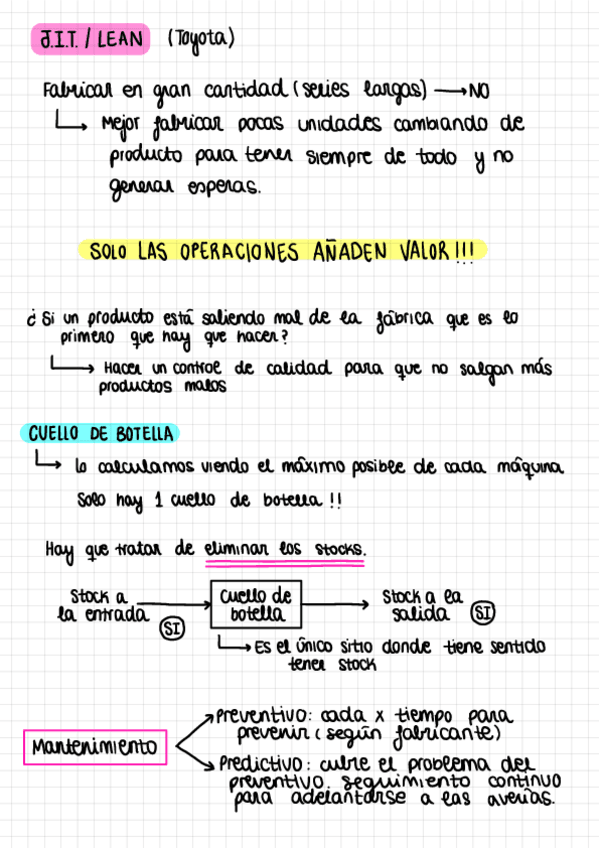 J.I.T. / LEAN (Toyota)
Fabricar en gran cantidad (series largas) → NO
Mejor fabricar pocas unidades cambiando de
producto para tener siempre de todo y no
generar esperas.
SOLO LAS OPERACIONES AÑADEN VALOR!!!
¿Si un producto está saliendo mal de la fábrica que es lo
primero que hay que hacer?
Hacer un control de calidad para que no salgan más
productos malos
CUELLO DE BOTELLA
lo calculamos viendo el máximo posible de cada máquina
Solo hay 1 cuello de botella!!
Hay que tratar de eliminar los stocks.
Stock a
la entrada
SI
cuello de
botella
Stock a la
salida
SI
Es el único sitio donde tiene sentido
tener stock
Mantenimiento
Preventivo: cada x tiempo para
prevenir (según fabricante)
Predictivo: cubre el problema del
preventivo. seguimiento continuo
para adelantarse a las averías.